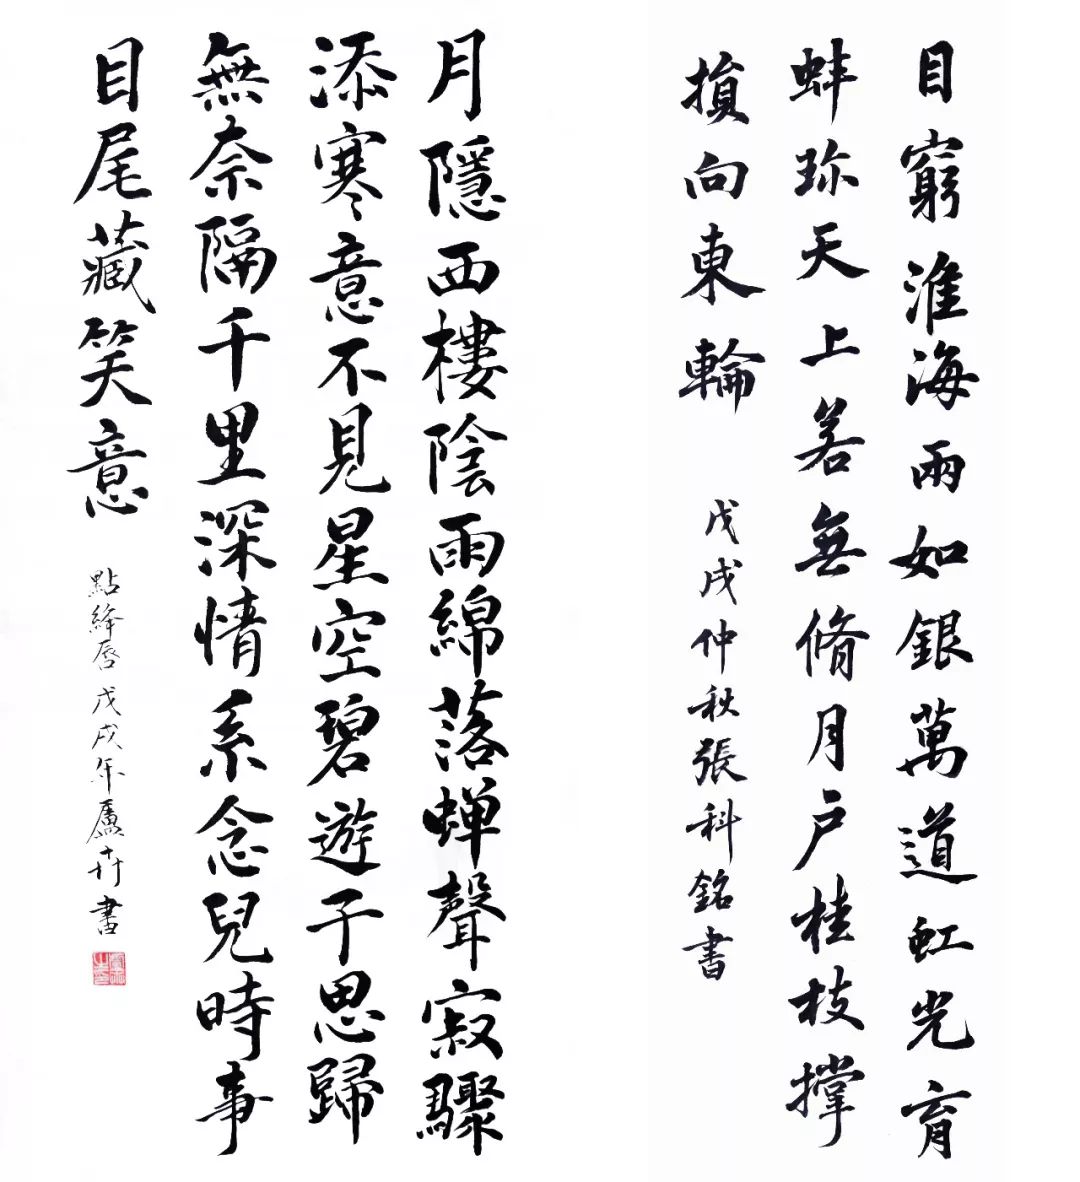 目窮淮海兩如銀萬道虹光育
蚌珎天上若無脩月户桂枝撑
損向東輪
戊戌仲秋張科銘書
月隱西樓陰雨綿落蝉聲寂驟
添寒意不見星空碧遊子思歸
無奈隔千里深情系念兒時事
目尾藏笑意
點絳唇戊戌年廬卉書